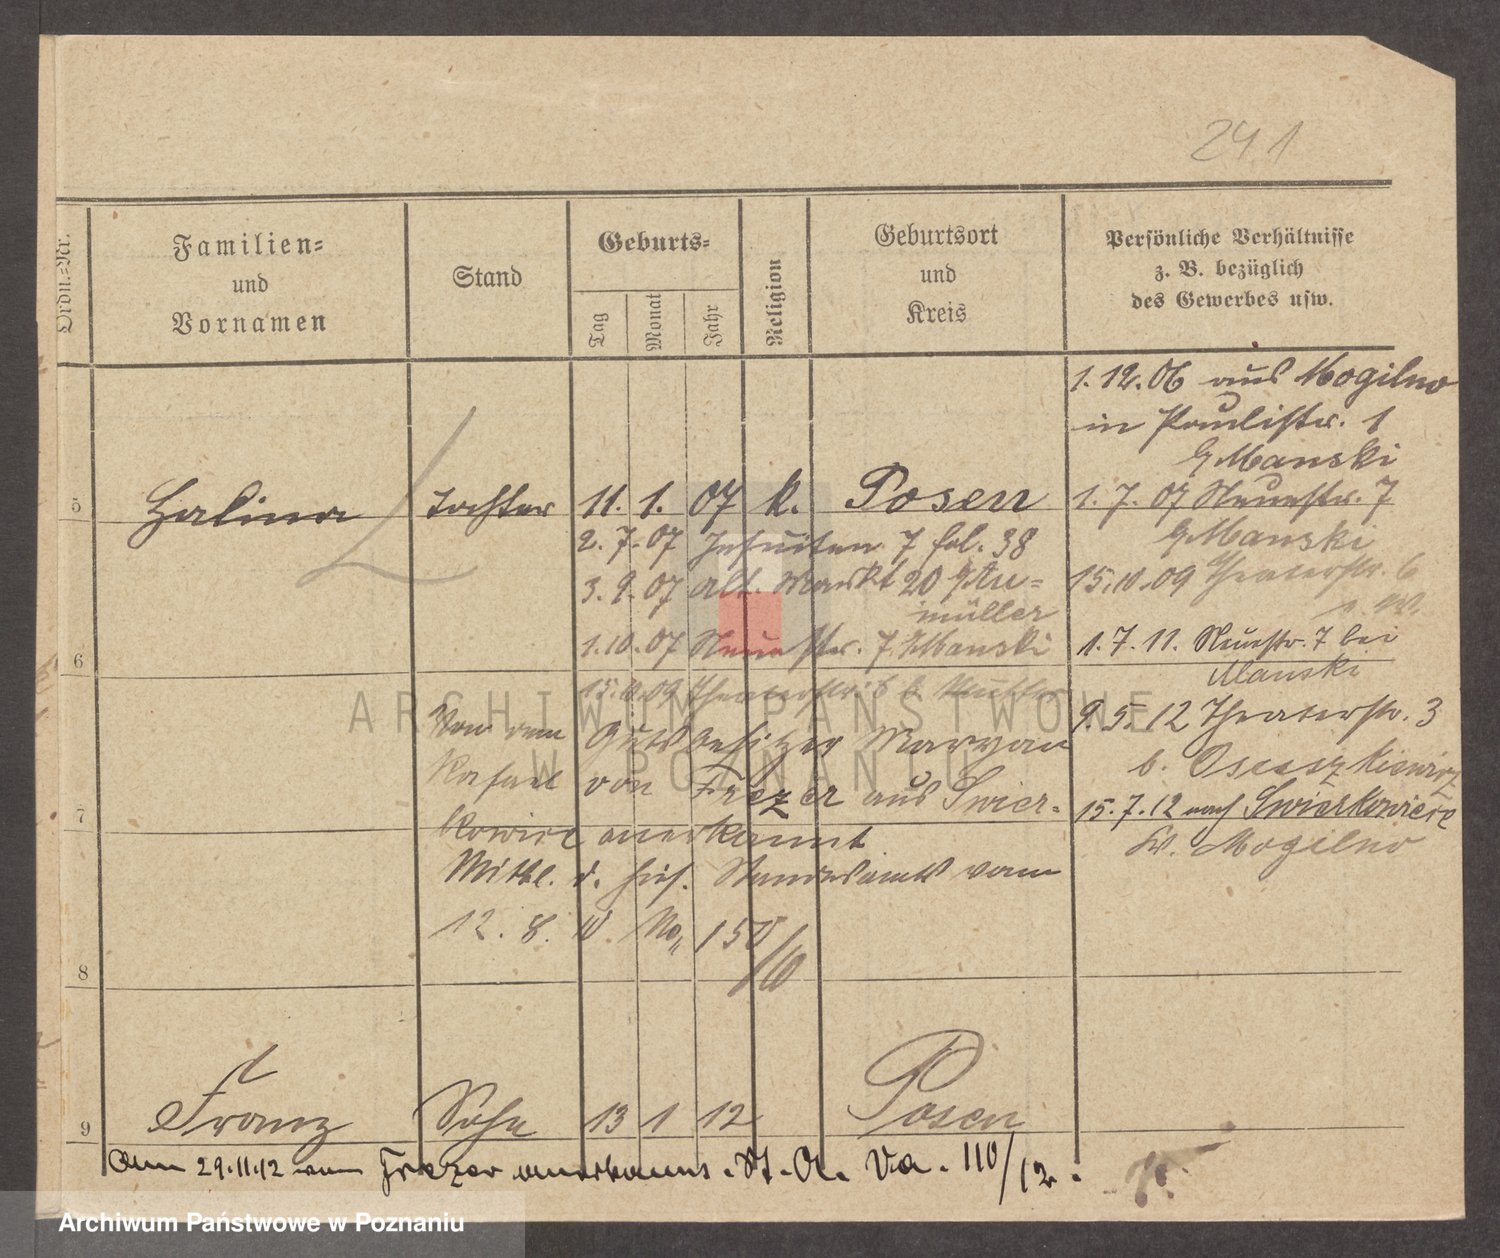 241
Ordn.-Nr.
Familien-
und
Vornamen
Stand
Geburts-
Tag
Monat
Jahr
Religion
Geburtsort
und
Kreis
Persönliche Verhältnisse
z. B. bezüglich
des Gewerbes usw.
1.12.06 aus Mogilno
in Paulistr. 1
Manski
5 Halina Tochter 11. 1. 07 k. Posen
1.7.07 Neuestr. 7
Manski
2.7.07 Jesuiten 7 fol. 38
3.9.07 Alt. Markt 20
müller
15.10.09 Theaterstr. 6
1.10.07 Neue str. 7. Manski
1.7.11. Neuestr. 7 bei
Manski
6
15.10.09 Theaterstr. 6 b. Mutter
9.5.12 Theaterstr. 3
b.
15.7.12 nach Swierkowiec
Kr. Mogilno
Von dem Gutsbesitzer Maryan
Rafael von Frezer aus Swier-
7
kowiec anerkannt
Mittl. d. hies. Standesamts vom
12. 8. 10 No 150/10
8
9 Franz Sohn 13 1 12 Posen
Am 29.11.12 vom Frezer anerkannt. St. A. Va. 110/12.
ARCHIWUM PAŃSTWOWE
W POZNANIU
Archiwum Państwowe w Poznaniu